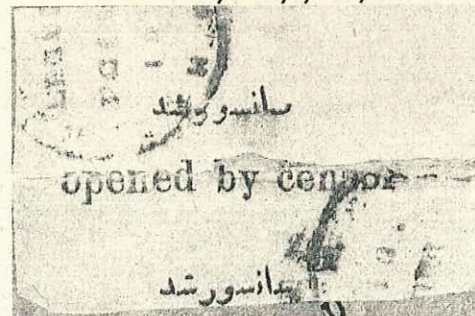 سانسور شد
opened by censor
سانسور شد